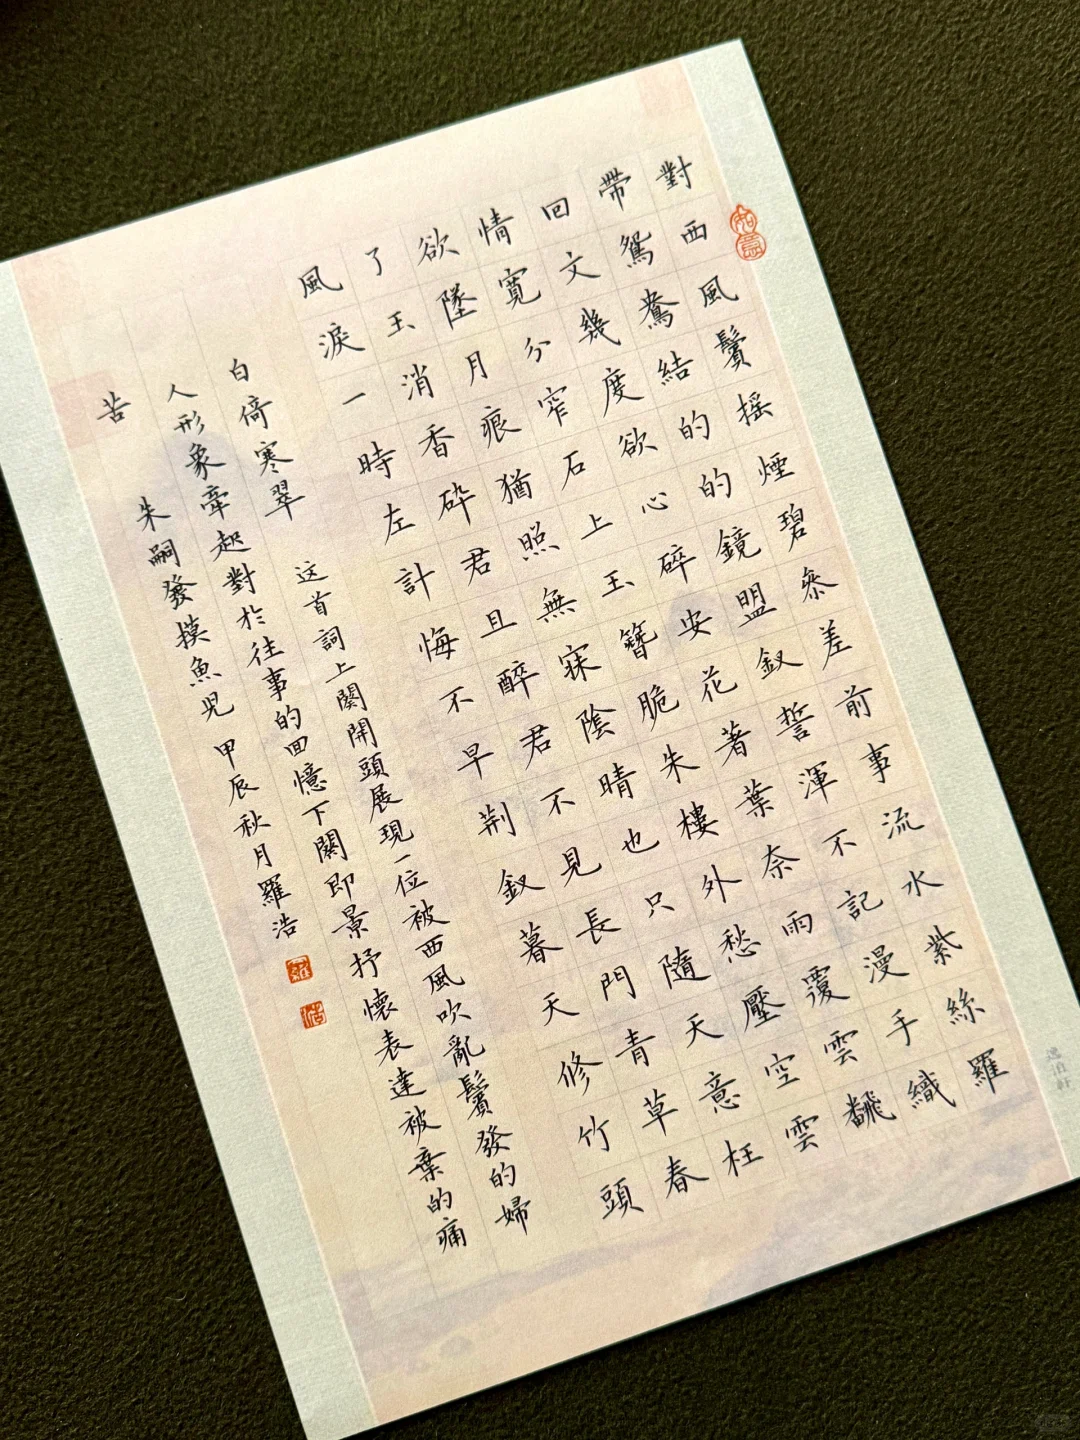 對西風鬢搖煙碧參差前事流水紫絲羅
帶鴛鴦結的的鏡盟釵誓渾不記漫手織
回文幾度欲心碎安花著葉奈雨覆雲飜
情寬分窄石上玉簪脆朱樓外愁壓空雲
欲墜月痕猶照無寐陰晴也只隨天意枉
了玉消香砕君且醉君不見長門青草春
風淚一時左計悔不早荆釵暮天修竹頭
白倚寒翠 这首詞上闋開頭展現一位被西風吹亂鬢發的婦
人形象牽起對於往事的回憶下闋即景抒懷表達被棄的痛
苦 朱嗣發摸魚兒 甲辰秋月羅浩
如意
羅
浩